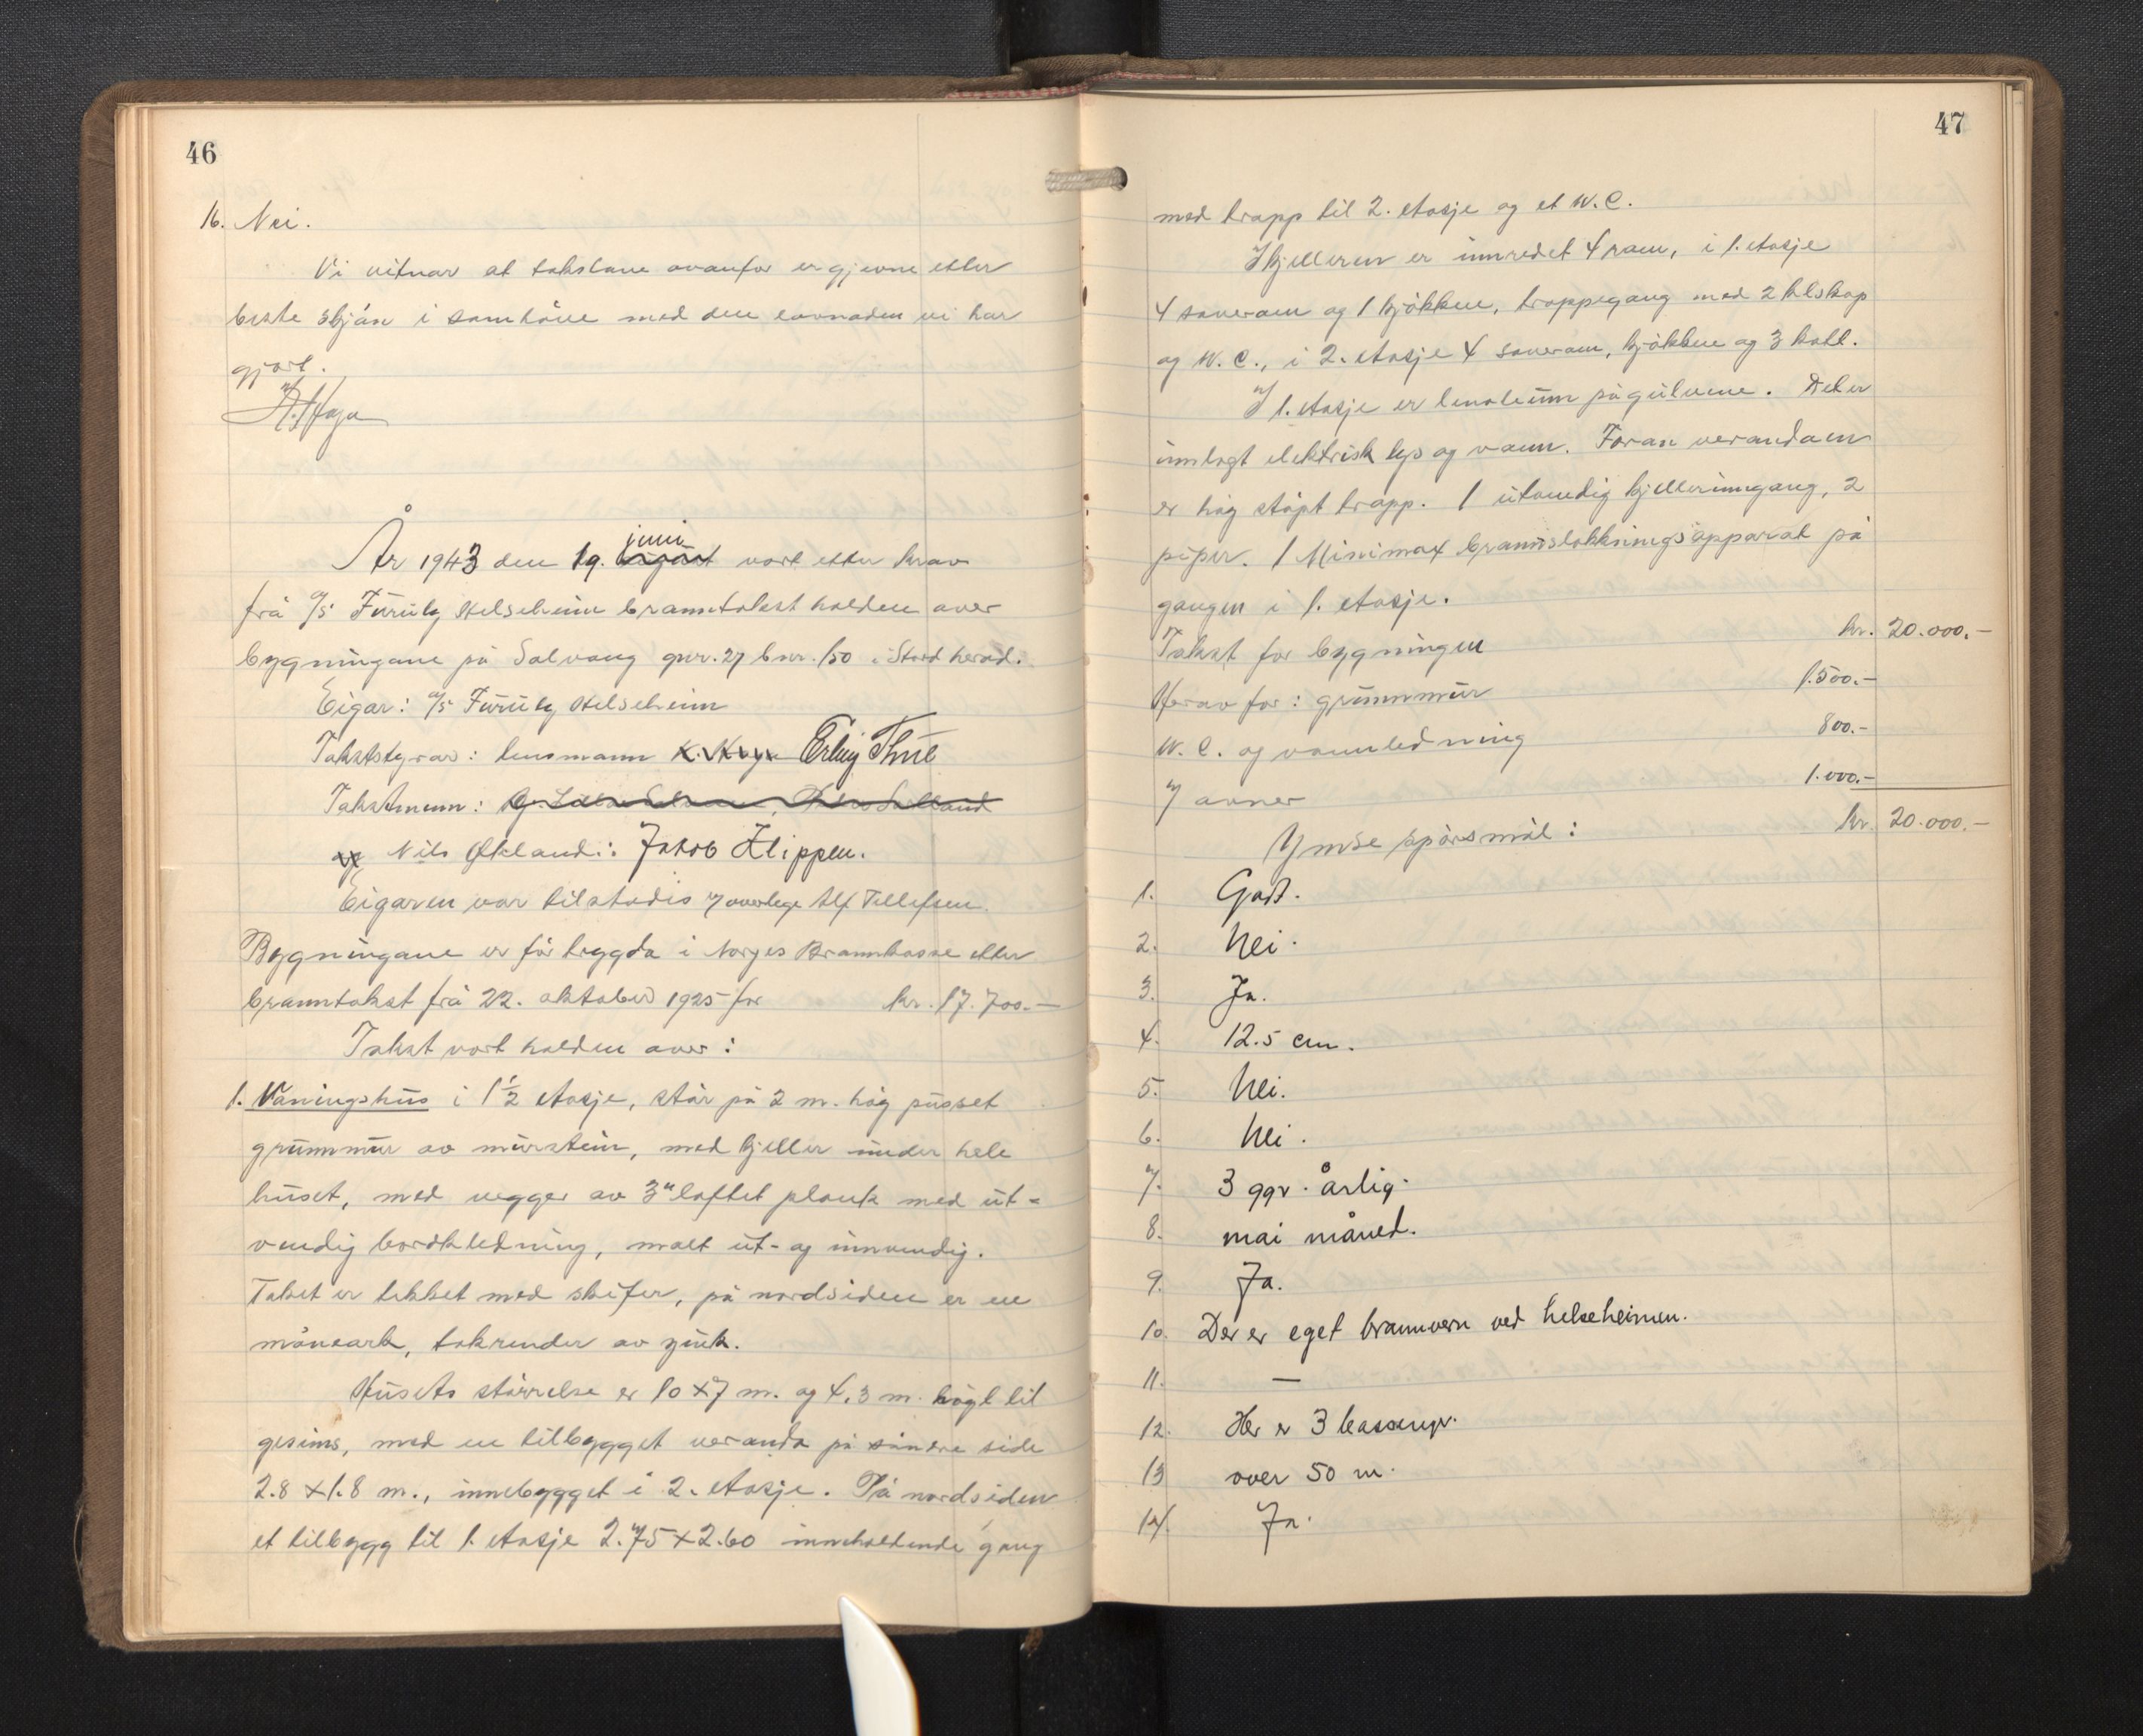 46
16. Nei.
Vi vitnar at takstane ovanfor er gjevne etter
beste skjøn i samhøve med den lovnaden vi har
gjort.
År 1943 den 19. juni vart etter krav
frå a/s Furuly Helseheim branntakst halden over
bygningane på Salvang gnr. 27 bnr. 150 i Stord herad.
Eigar: a/s Furuly Helseheim
Takststyrar: lensmann K. Haga Erling Thue
Takstmenn:
og Nils Økland: Jakob Klippen.
Eigaren var tilstades v/ overlege Alf Tellefsen.
Bygningane er før trygda i Norges Brannkasse etter
branntakst frå 22. oktober 1925 for kr. 17.700.—
Takst vart halden over:
1. Våningshus i 1 1/2 etasje, står på 2 m. høg pusset
grunnmur av murstein, med kjeller under hele
huset, med vegger av 3" laftet plank med ut-
vendig bordkledning, malt ut- og innvendig.
Taket er tekket med skifer, på nordsiden er en
møneark, takrender av zink.
Husets størrelse er 10 x 7 m. og 4.3 m. høgt til
gesims, med en tilbygget veranda på søndre side
2.8 x 1.8 m., innebygget i 2. etasje. På nordsiden
et tilbygg til 1. etasje 2.75 x 2.60 inneholdende gang
47
med trapp til 2. etasje og et W.C.
I kjelleren er innredet 4 rom, i 1. etasje
4 soverom og 1 kjøkken, trappegang med 2 klskap
og W.C., i 2. etasje 4 soverom, kjøkken og 3 kott.
I 1. etasje er linoleum på gulvene. Det er
innlagt elektrisk lys og vann. Foran verandaen
er høg støpt trapp. 1 utvendig kjellerinngang, 2
piper. 1 Minimax brannslokkningsapparat på
gangen i 1. etasje.
Takst for bygningen kr. 20.000.—
Herav for: grunnmur 1.500.—
W.C. og vannledning 800.—
7 ovner 1.000.—
kr. 20.000.—
Ymse spørsmål:
1. Godt.
2. Nei.
3. Ja.
4. 12.5 cm.
5. Nei.
6. Nei.
7. 3 ggr. årlig.
8. mai måned.
9. Ja.
10. Der er eget brannvern ved helseheimen.
11. —
12. Her er 3 bassenger.
13 over 50 m.
14. Ja.